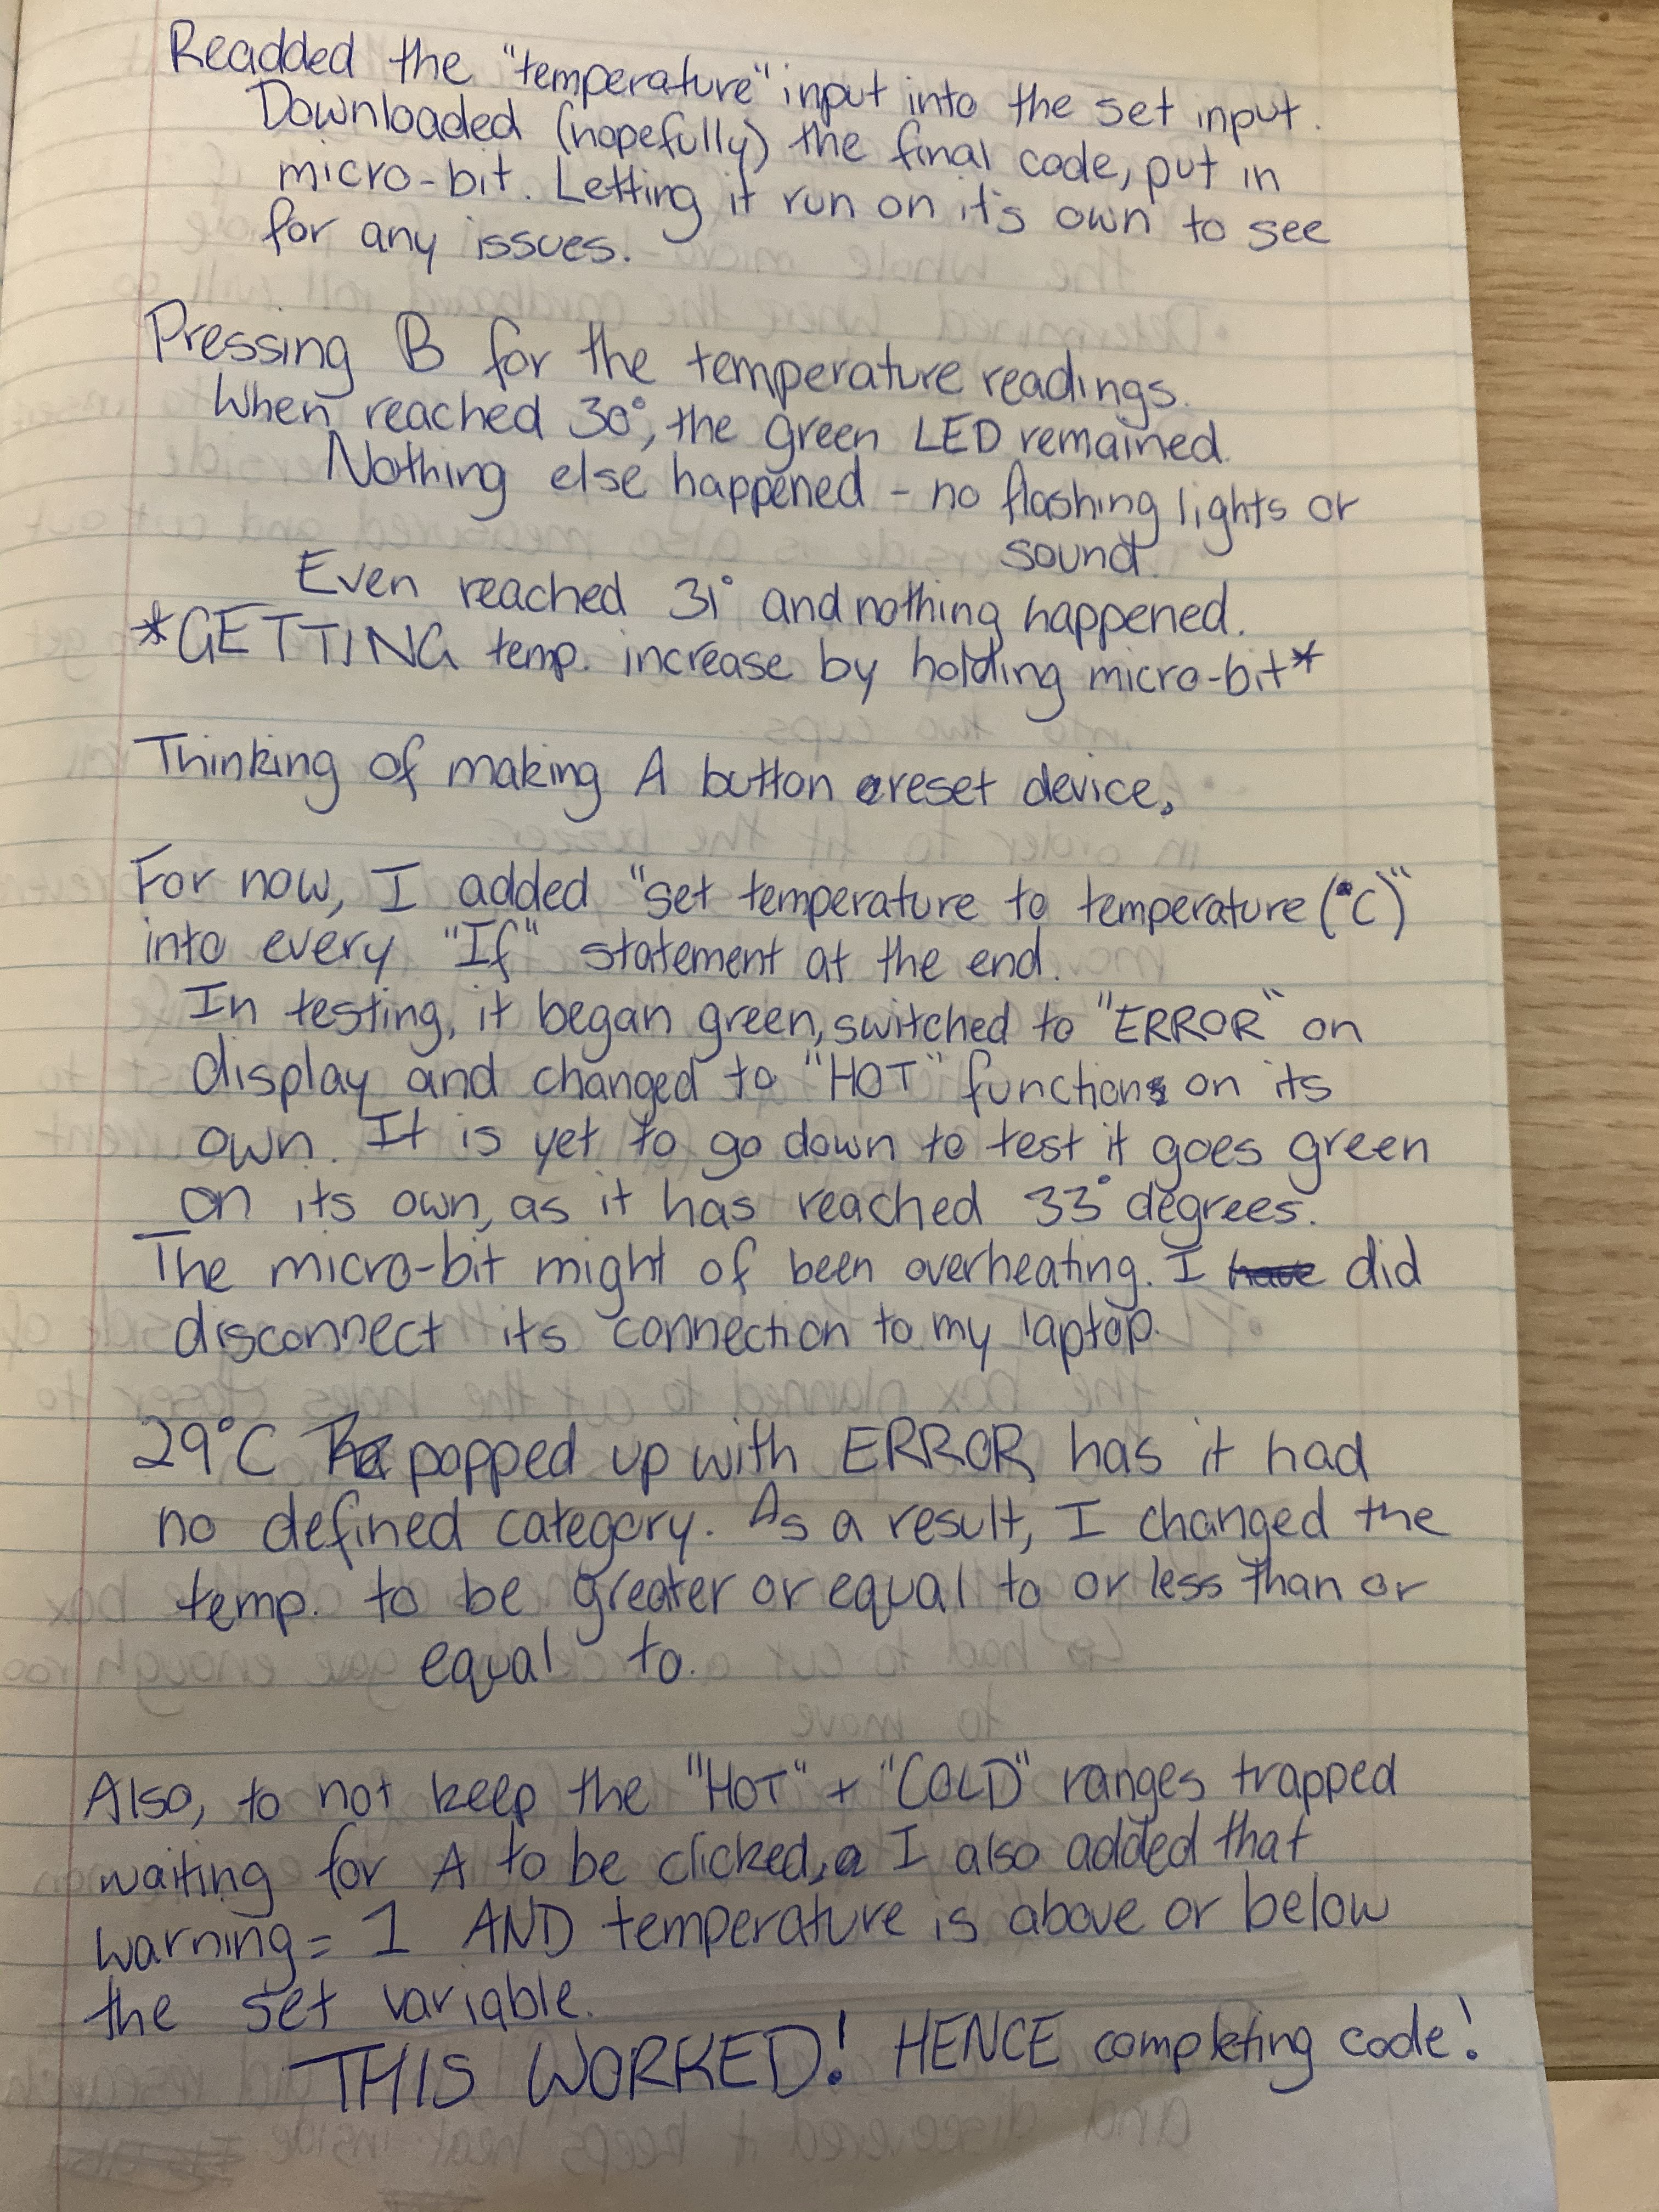 Readded the "temperature" input into the set input.
Downloaded (hopefully) the final code, put in
micro-bit. Letting it run on it's own to see
for any issues.
Pressing B for the temperature readings.
When reached 30°, the green LED remained.
Nothing else happened - no flashing lights or
sound.
Even reached 31° and nothing happened.
*GETTING temp. increase by holding micro-bit*
Thinking of making A button reset device.
For now, I added "set temperature to temperature (°C)"
into every "If" statement at the end.
In testing, it began green, switched to "ERROR" on
display and changed to "HOT" functions on its
own. It is yet to go down to test it goes green
on its own, as it has reached 33° degrees.
The micro-bit might of been overheating. I have did
disconnect its connection to my laptop.
29°C popped up with ERROR, has it had
no defined category. As a result, I changed the
temp. to be greater or equal to or less than or
equal to.
Also, to not keep the "HOT" + "COLD" ranges trapped
waiting for A to be clicked, I also added that
warning = 1 AND temperature is above or below
the set variable.
THIS WORKED! HENCE completing code!